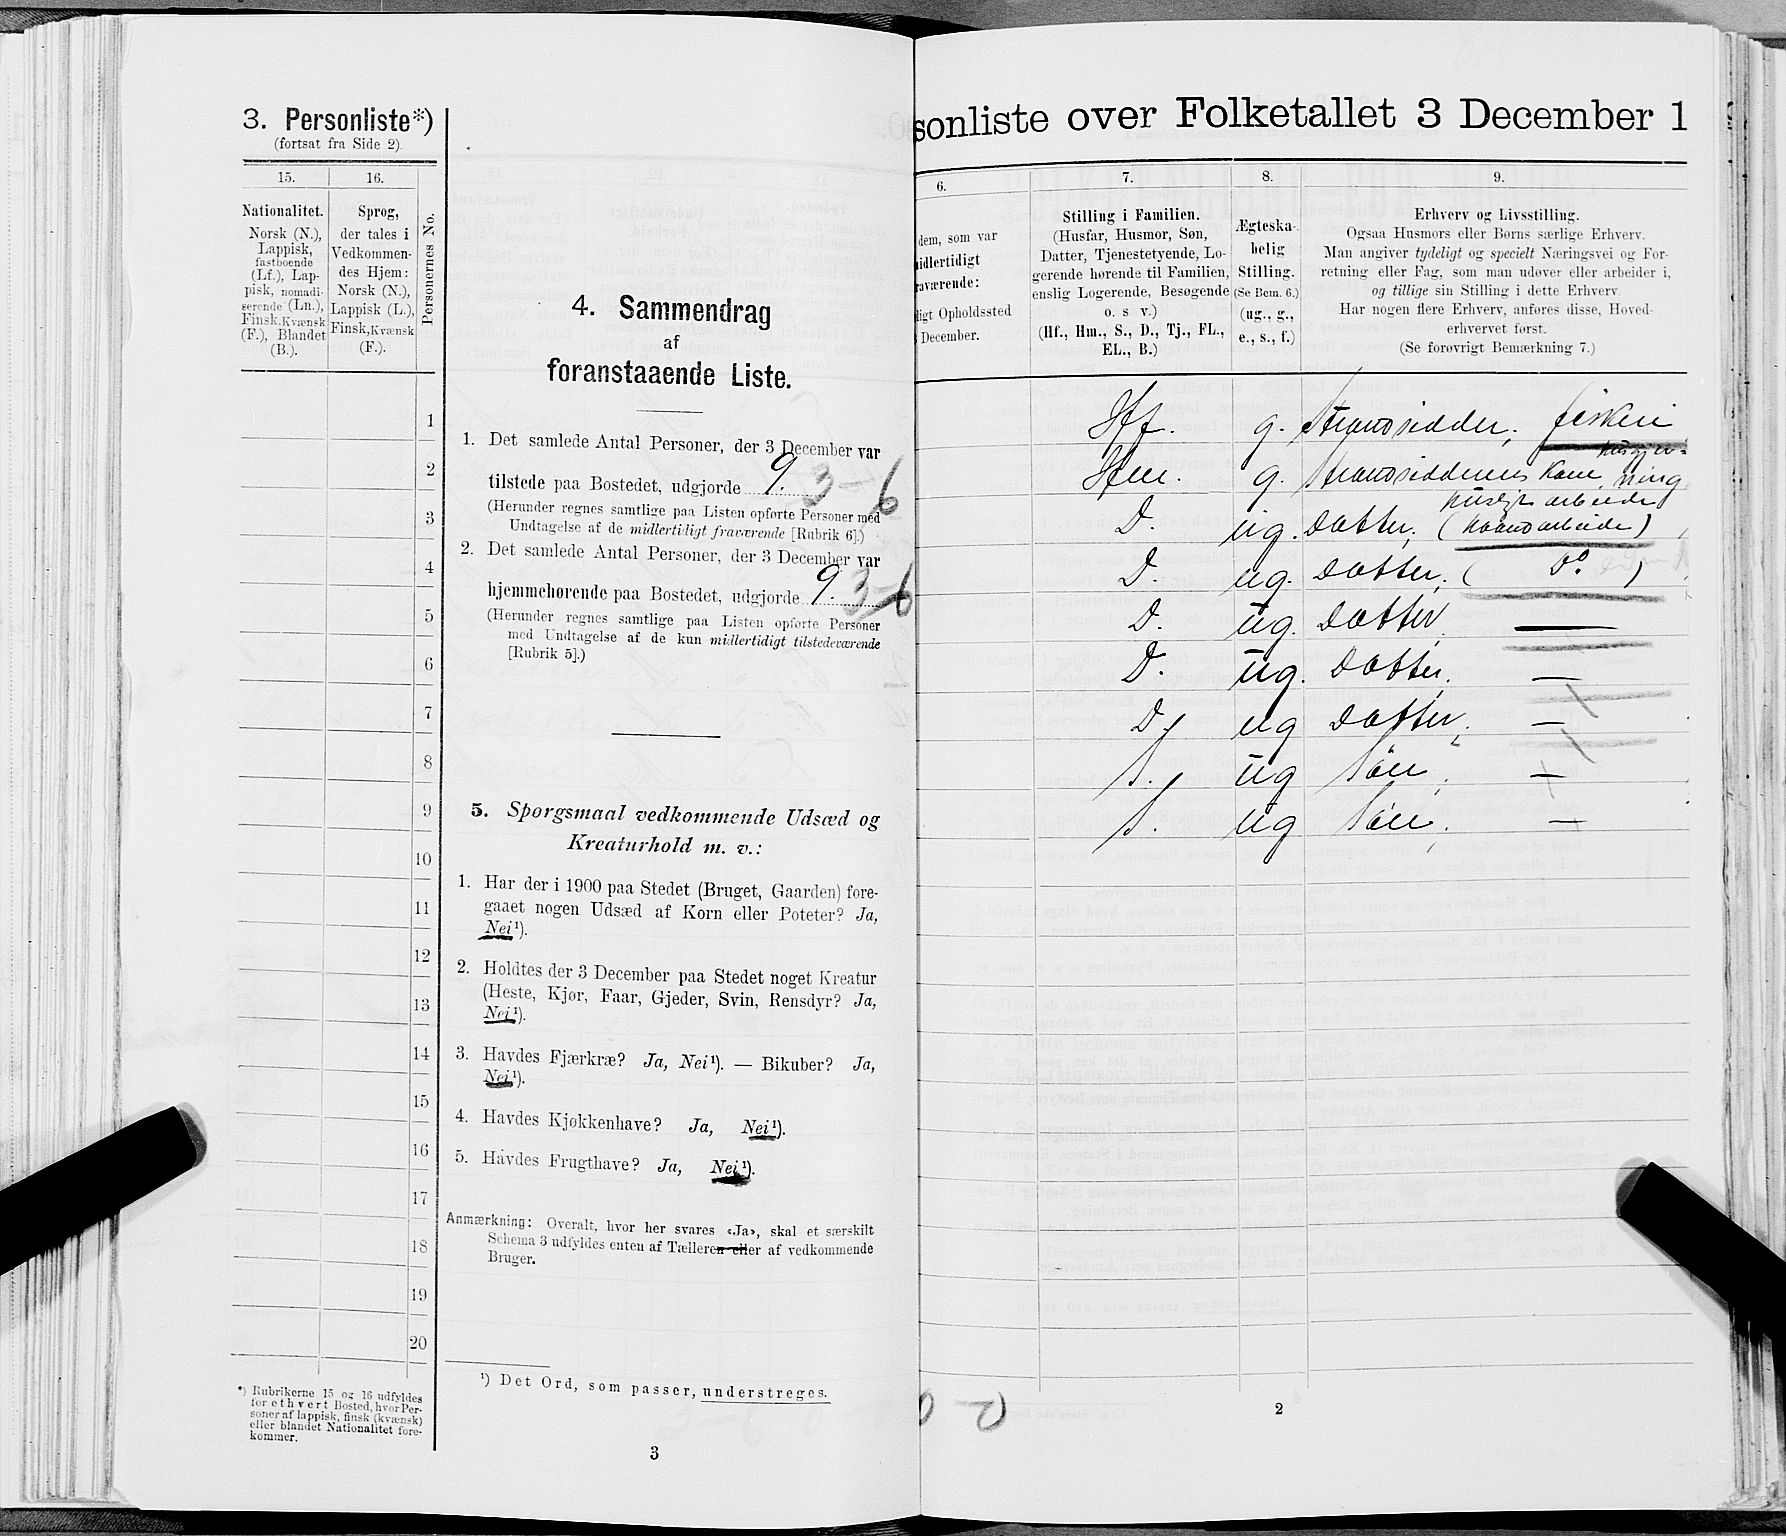 3. Personliste*)
(fortsat fra Side 2).
15.
16.
Nationalitet.
Norsk (N.),
Lappisk,
fastboende
(Lf.), Lap-
pisk, nomadi-
serende (Ln.),
Finsk, Kvænsk
(F.), Blandet
(B.).
Sprog,
der tales i
Vedkommen-
des Hjem:
Norsk (N.),
Lappisk (L.),
Finsk, Kvænsk
(F.).
Personernes No.
1
2
3
4
5
6
7
8
9
10
11
12
13
14
15
16
17
18
19
20
*) Rubrikerne 15 og 16 udfyldes
for ethvert Bosted, hvor Per-
soner af lappisk, finsk (kvænsk)
eller blandet Nationalitet fore-
kommer.
4. Sammendrag
af
foranstaaende Liste.
1. Det samlede Antal Personer, der 3 December var
tilstede paa Bostedet, udgjorde 9. 3-6
(Herunder regnes samtlige paa Listen opførte Personer med
Undtagelse af de midlertidigt fraværende [Rubrik 6].)
2. Det samlede Antal Personer, der 3 December var
hjemmehørende paa Bostedet, udgjorde 9. 3-6
(Herunder regnes samtlige paa Listen opførte Personer
med Undtagelse af de kun midlertidigt tilstedeværende
[Rubrik 5].)
5. Spørgsmaal vedkommende Udsæd og
Kreaturhold m. v.:
1. Har der i 1900 paa Stedet (Bruget, Gaarden) fore-
gaaet nogen Udsæd af Korn eller Poteter? Ja,
Nei¹).
2. Holdtes der 3 December paa Stedet noget Kreatur
(Heste, Kjør, Faar, Gjeder, Svin, Rensdyr? Ja,
Nei¹).
3. Havdes Fjærkræ? Ja, Nei¹). — Bikuber? Ja,
Nei¹).
4. Havdes Kjøkkenhave? Ja, Nei¹).
5. Havdes Frugthave? Ja, Nei¹).
Anmærkning: Overalt, hvor her svares «Ja», skal et særskilt
Schema 3 udfyldes enten af Tælleren eller af vedkommende
Bruger.
¹) Det Ord, som passer, understreges.
3
sonliste over Folketallet 3 December 1
6.
7.
8.
9.
dem, som var
midlertidigt
raværende:
digt Opholdssted
December.
Stilling i Familien.
(Husfar, Husmor, Søn,
Datter, Tjenestetyende, Lo-
gerende hørende til Familien,
enslig Logerende, Besøgende
o. s v.)
(Hf., Hm., S., D., Tj., FL.,
EL., B.)
Ægteska-
belig
Stilling.
(Se Bem. 6.)
(ug., g.,
e., s., f.)
Erhverv og Livsstilling.
Ogsaa Husmors eller Børns særlige Erhverv.
Man angiver tydeligt og specielt Næringsvei og For-
retning eller Fag, som man udøver eller arbeider i,
og tillige sin Stilling i dette Erhverv.
Har nogen flere Erhverv, anføres disse, Hoved-
erhvervet først.
(Se forøvrigt Bemærkning 7.)
Hf. g. Strandsidder, fiskeri
husgjer-
Hm. g. Strandsidderens kone, ning
husligt arbeide
D. ug. Datter, (haandarbeide)
D. ug. Datter, ( do )
D. ug. Datter, —
D. ug. Datter, —
D. ug Datter, —
S. ug Søn, —
S. ug Søn, —
2